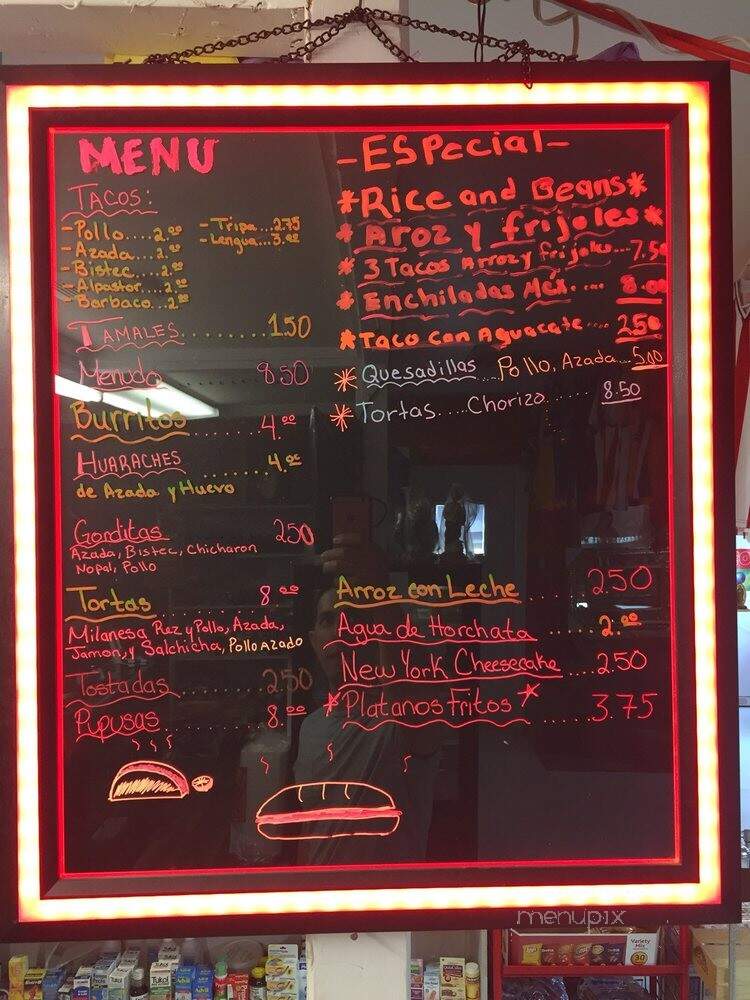 MENU
TACOS:
-Pollo.....2.00
-Azada....2.00
-Bistec....2.00
-Alpastor....2.00
-Barbaco...2.00
-Tripa...2.75
-Lengua...3.00
TAMALES..........1.50
Menudo 8.50
Burritos........4.00
HUARACHES.......4.00
de Azada y Huevo
Gorditas 250
Azada, Bistec, Chicharon
Nopal, Pollo
Tortas.........8.00
Milanesa Rez y Pollo, Azada,
Jamon, y Salchicha, Pollo AZADO
Tostadas........250
Pupusas.........8.00
-ESPecial-
*Rice and Beans*
*Aroz y frijoles*
*3 Tacos Arroz y frijoles...7.50
*Enchiladas Mex.... 8.00
*Taco Con Aguacate.... 250
*Quesadillas....Pollo, Azada....5.00
*Tortas....Chorizo...... 8.50
Arroz con Leche..... 250
Agua de Horchata......2.00
New York Cheesecake....250
*Platanos Fritos*.....3.75
menupix
Tukol
Tukol
Advil
Variety
Mix
30